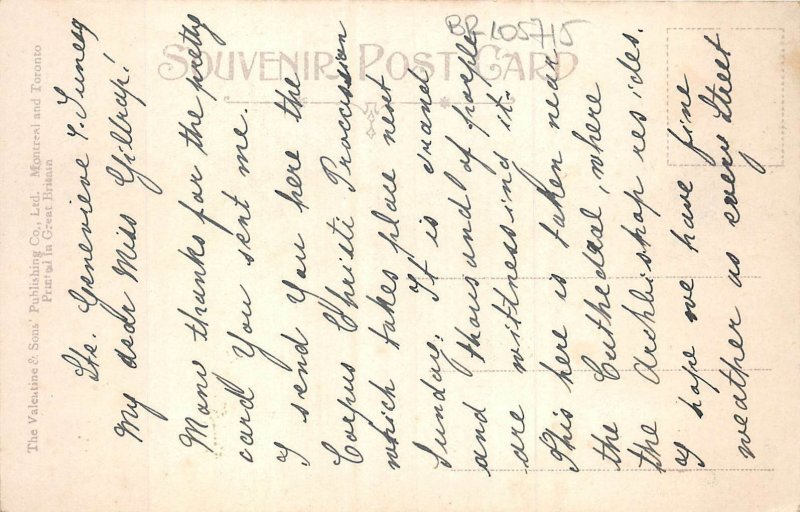 BR 105715
SOUVENIR POST CARD
The Valentine & Sons' Publishing Co., Ltd. Montreal and Toronto
Printed in Great Britain
Ste. Genevieve
My dear Miss Gillrap!
Many thanks for the pretty
card You sent me.
I send You here the
Corpus Christi Proccission
which takes place next
Sunday. It is grand
and thousand of people
are wittnessing it.
This here is taken near
the Cathedral, where
the Archbishop resides.
I hope we have fine
weather as every Street